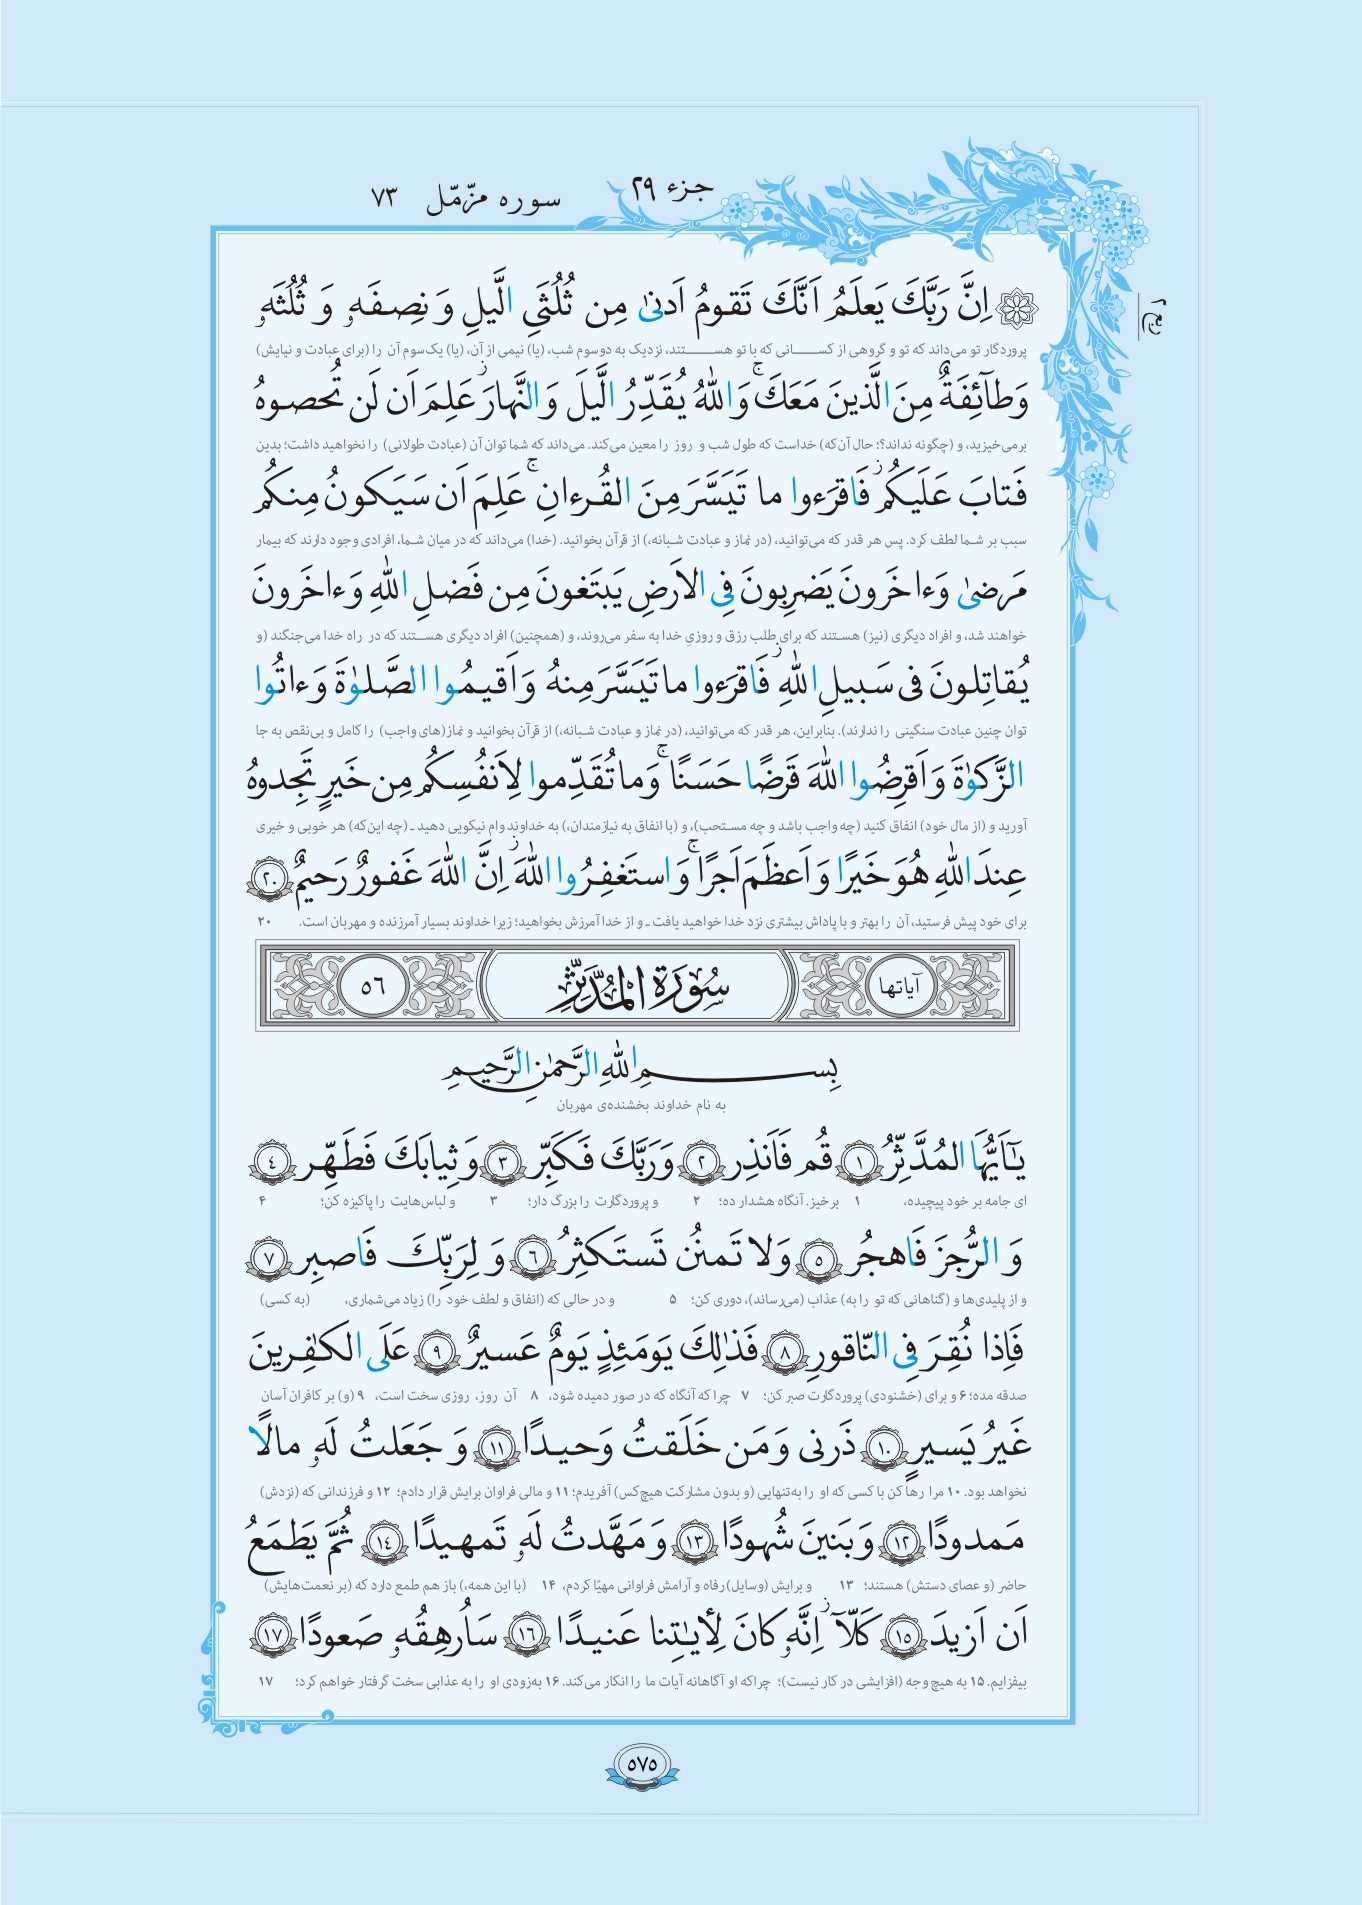 جزء ۲۹
سوره مزّمّل ۷۳
ربع ۲
اِنَّ رَبَّكَ يَعلَمُ اَنَّكَ تَقومُ اَدنىٰ مِن ثُلُثَيِ الَّيلِ وَ نِصفَهٗ وَ ثُلُثَهٗ
پروردگار تو می‌داند که تو و گروهی از کسانی که با تو هستند، نزدیک به دوسوم شب، (یا) نیمی از آن، (یا) یک‌سوم آن را (برای عبادت و نیایش)
وَ طآئِفَةٌ مِنَ الَّذينَ مَعَكَ ۚ وَ اللّٰهُ يُقَدِّرُ الَّيلَ وَ النَّهارَ ۚ عَلِمَ اَن لَن تُحصوهُ
برمی‌خیزید، و (چگونه نداند؟؛ حال آن‌که) خداست که طول شب و روز را معین می‌کند. می‌داند که شما توان آن (عبادت طولانی) را نخواهید داشت؛ بدین
فَتابَ عَلَيكُم ۖ فَاقرَءوا ما تَيَسَّرَ مِنَ القُرءانِ ۚ عَلِمَ اَن سَيَكونُ مِنكُم
سبب بر شما لطف کرد. پس هر قدر که می‌توانید، (در نماز و عبادت شبانه،) از قرآن بخوانید. (خدا) می‌داند که در میان شما، افرادی وجود دارند که بیمار
مَرضىٰ وَ ءاخَرونَ يَضرِبونَ فِى الاَرضِ يَبتَغونَ مِن فَضلِ اللّٰهِ وَ ءاخَرونَ
خواهند شد، و افراد دیگری (نیز) هستند که برای طلب رزق و روزیِ خدا به سفر می‌روند، و (همچنین) افراد دیگری هستند که در راه خدا می‌جنگند (و
يُقاتِلونَ فى سَبيلِ اللّٰهِ ۖ فَاقرَءوا ما تَيَسَّرَ مِنهُ وَ اَقيمُوا الصَّلوٰةَ وَ ءاتُوا
توان چنین عبادت سنگینی را ندارند). بنابراین، هر قدر که می‌توانید، (در نماز و عبادت شبانه،) از قرآن بخوانید و نماز(های واجب) را کامل و بی‌نقص به جا
الزَّكوٰةَ وَ اَقرِضُوا اللّٰهَ قَرضًا حَسَنًا ۚ وَ ما تُقَدِّموا لِاَنفُسِكُم مِن خَيرٍ تَجِدوهُ
آورید و (از مال خود) انفاق کنید (چه واجب باشد و چه مستحب)، و (با انفاق به نیازمندان،) به خداوند وام نیکویی دهید ـ (چه این‌که) هر خوبی و خیری
عِندَ اللّٰهِ هُوَ خَيرًا وَ اَعظَمَ اَجرًا ۚ وَ استَغفِرُوا اللّٰهَ ۖ اِنَّ اللّٰهَ غَفورٌ رَحيمٌ ۲۰
برای خود پیش فرستید، آن را بهتر و با پاداش بیشتری نزد خدا خواهید یافت ـ و از خدا آمرزش بخواهید؛ زیرا خداوند بسیار آمرزنده و مهربان است. ۲۰
آیاتها سُورَةُ المُدَّثِّرِ ۵۶
بِسمِ اللّٰهِ الرَّحمٰنِ الرَّحيمِ
به نام خداوند بخشنده‌ی مهربان
يٰۤاَيُّهَا المُدَّثِّرُ ۱ قُم فَاَنذِر ۲ وَ رَبَّكَ فَكَبِّر ۳ وَ ثِيابَكَ فَطَهِّر ٤
ای جامه بر خود پیچیده، ۱ برخیز. آنگاه هشدار ده؛ ۲ و پروردگارت را بزرگ دار؛ ۳ و لباس‌هایت را پاکیزه کن؛ ۴
وَ الرُّجزَ فَاهجُر ۵ وَ لا تَمنُن تَستَكثِرُ ٦ وَ لِرَبِّكَ فَاصبِر ۷
و از پلیدی‌ها و (گناهانی که تو را به) عذاب (می‌رساند)، دوری کن؛ ۵ و در حالی که (انفاق و لطف خود را) زیاد می‌شماری، (به کسی)
فَاِذا نُقِرَ فِى النّاقورِ ۸ فَذٰلِكَ يَومَئِذٍ يَومٌ عَسيرٌ ۹ عَلَى الكٰفِرينَ
صدقه مده؛ ۶ و برای (خشنودی) پروردگارت صبر کن؛ ۷ چرا که آنگاه که در صور دمیده شود، ۸ آن روز، روزی سخت است، ۹ (و) بر کافران آسان
غَيرُ يَسيرٍ ۱۰ ذَرنى وَ مَن خَلَقتُ وَحيدًا ۱۱ وَ جَعَلتُ لَهٗ مالًا
نخواهد بود. ۱۰ مرا رها کن با کسی که او را به‌تنهایی (و بدون مشارکت هیچ‌کس) آفریدم؛ ۱۱ و مالی فراوان برایش قرار دادم؛ ۱۲ و فرزندانی که (نزدش)
مَمدودًا ۱۲ وَ بَنينَ شُهودًا ۱۳ وَ مَهَّدتُ لَهٗ تَمهيدًا ۱٤ ثُمَّ يَطمَعُ
حاضر (و عصای دستش) هستند؛ ۱۳ و برایش (وسایل) رفاه و آرامش فراوانی مهیّا کردم، ۱۴ (با این همه،) باز هم طمع دارد که (بر نعمت‌هایش)
اَن اَزيدَ ۱۵ كَلّاۤ ۖ اِنَّهٗ كانَ لِأيٰتِنا عَنيدًا ۱٦ سَاُرهِقُهٗ صَعودًا ۱۷
بیفزایم. ۱۵ به هیچ وجه (افزایشی در کار نیست)؛ چراکه او آگاهانه آیات ما را انکار می‌کند. ۱۶ به‌زودی او را به عذابی سخت گرفتار خواهم کرد؛ ۱۷
۵۷۵